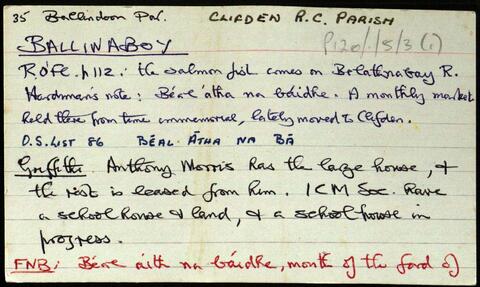 35 Ballindoon Par. CLIFDEN R.C. PARISH
P120/1/5/3 (1)
BALLINABOY
RO'fl. p112. : the salmon fish comes on Belathnabay R.
Hardiman's note : Béal 'átha na báidhe. A monthly market
held there from time immemorial, lately moved to Clifden.
O.S. LIST 86 BÉAL ÁTHA NA BÁ
Griffith Anthony Morris has the large house, &
the rest is leased from him. ICM Soc. have
a school house & land, & a school house in
progress.
FNB: Béal áith na báidhe, mouth of the ford of